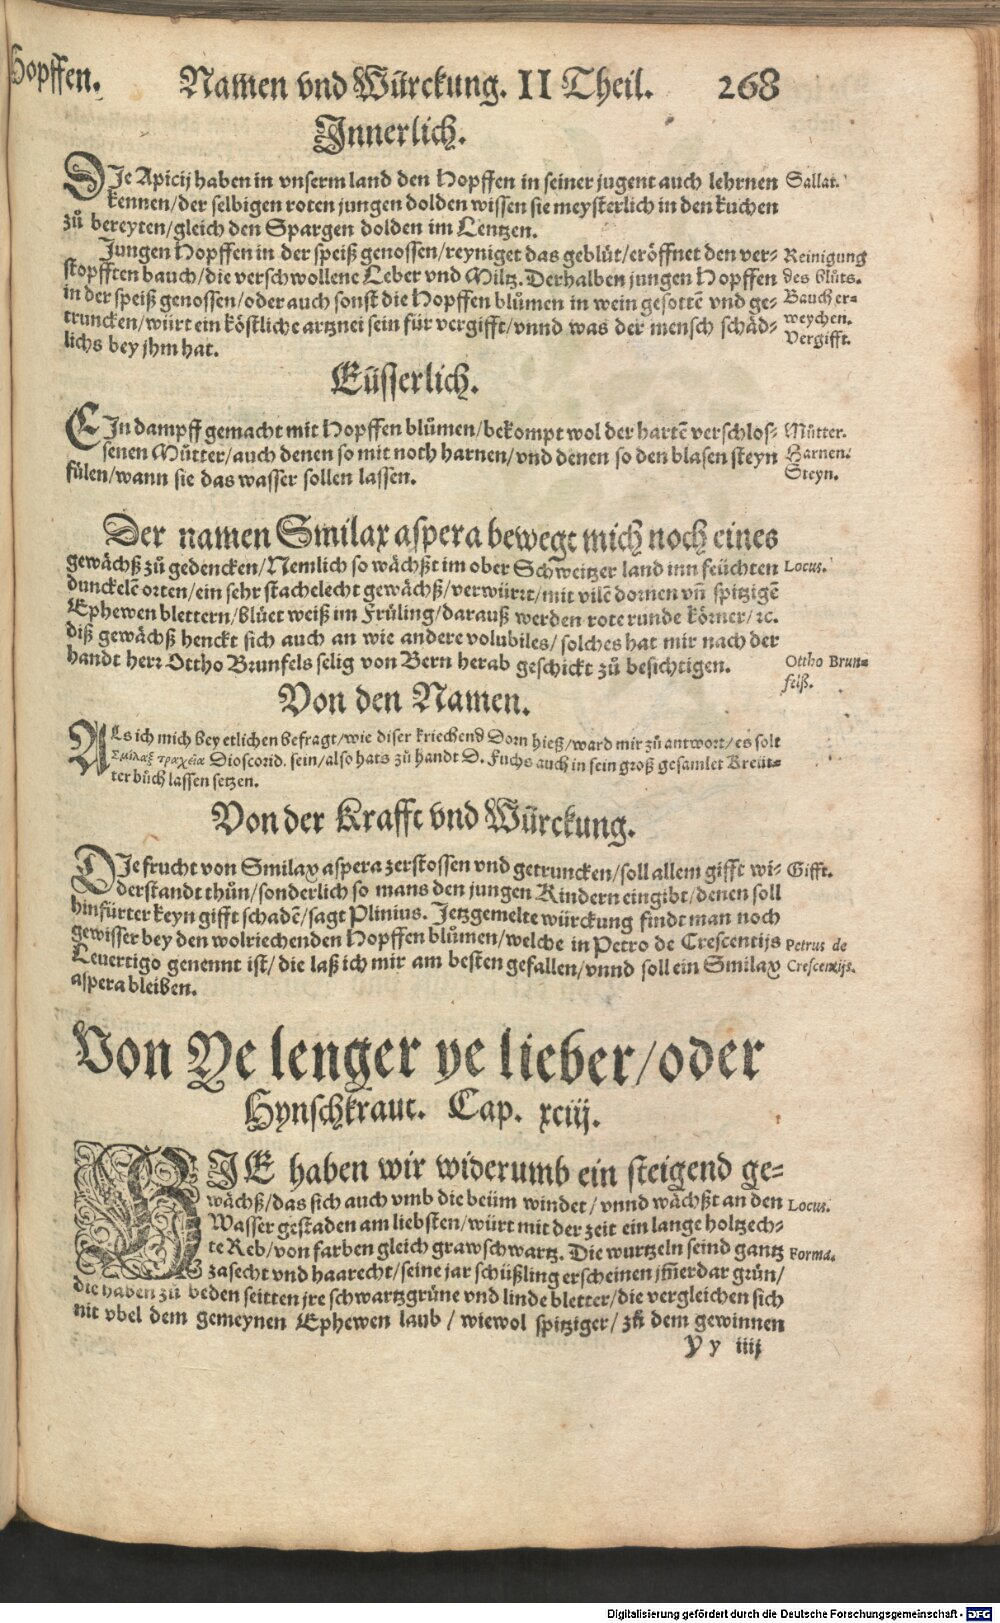 Hopffen.
Namen vnd Würckung. II Theil. 268
Innerlich.
DIe Apicij haben in vnserm land den Hopffen in seiner jugent auch lehrnen
kennen/der selbigen roten jungen dolden wissen sie meysterlich in den kuchen
zů bereyten/gleich den Spargen dolden im Lentzen.
Sallat.
Jungen Hopffen in der speiß genossen/reyniget das geblüt/eröffnet den ver-
stopfften bauch/die verschwollene Leber vnd Miltz. Derhalben jungen Hopffen
in der speiß genossen/oder auch sonst die Hopffen blůmen in wein gesottē vnd ge-
truncken/würt ein köstliche artznei sein für vergifft/vnnd was der mensch schäd-
lichs bey jhm hat.
Reinigung
des blůts.
Bauch er-
weychen.
Vergifft.
Eüsserlich.
EIn dampff gemacht mit Hopffen blůmen/bekompt wol der hartē verschlos-
senen Můtter/auch denen so mit noth harnen/vnd denen so den blasen steyn
fülen/wann sie das wasser sollen lassen.
Mütter.
Harnen.
Steyn.
Der namen Smilax aspera bewegt mich noch eines
gewächß zů gedencken/Nemlich so wächßt im ober Schweitzer land inn feüchten
dunckelē orten/ein sehr stachelecht gewächß/verwürrt/mit vilē dornen vñ spitzigē
Ephewen blettern/blüet weiß im Früling/darauß werden rote runde körner/ꝛc.
diß gewächß henckt sich auch an wie andere volubiles/solches hat mir nach der
handt herr Ottho Brunfels selig von Bern herab geschickt zů besichtigen.
Locus.
Ottho Brun-
felß.
Von den Namen.
ALs ich mich bey etlichen befragt/wie diser kriechend Dorn hieß/ward mir zů antwort/es solt
Σμίλαξ τραχεῖα Dioscorid. sein/also hats zů handt D. Fuchs auch in sein groß gesamlet Kreüt-
ter bůch lassen setzen.
Von der Krafft vnd Würckung.
DIe frucht von Smilax aspera zerstossen vnd getruncken/soll allem gifft wi-
derstandt thůn/sonderlich so mans den jungen Kindern eingibt/denen soll
hinfürter keyn gifft schadē/sagt Plinius. Jetzgemelte würckung findt man noch
gewisser bey den wolriechenden Hopffen blůmen/welche in Petro de Crescentijs
Leuertigo genennt ist/die laß ich mir am besten gefallen/vnnd soll ein Smilax
aspera bleiben.
Gifft.
Petrus de
Crescentijs.
Von Ye lenger ye lieber/oder
Hynschkraut. Cap. xciij.
HIE haben wir widerumb ein steigend ge-
wächß/das sich auch vmb die beüm windet/vnnd wächßt an den
Wasser gestaden am liebsten/würt mit der zeit ein lange holtzech-
te Reb/von farben gleich grawschwartz. Die wurtzeln seind gantz
zasecht vnd haarecht/seine jar schüßling erscheinen jm̄erdar grün/
die haben zů beden seitten jre schwartzgrüne vnd linde bletter/die vergleichen sich
nit vbel dem gemeynen Ephewen laub/wiewol spitziger/zů dem gewinnen
Locus.
Forma.
Y y iiij
Digitalisierung gefördert durch die Deutsche Forschungsgemeinschaft - DFG